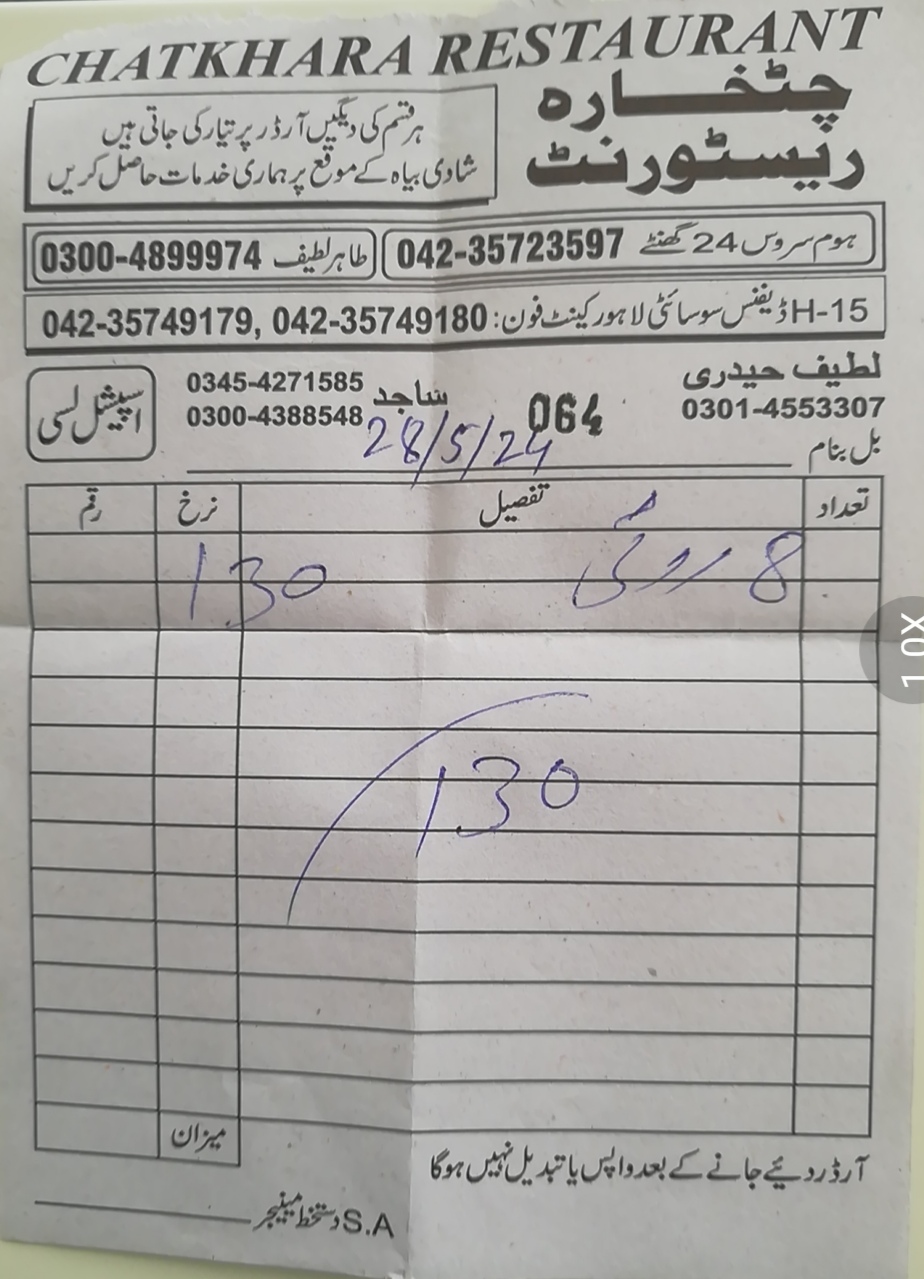 CHATKHARA RESTAURANT
چٹخارہ
ریسٹورنٹ
ہر قسم کی دیگیں آرڈر پر تیار کی جاتی ہیں
شادی بیاہ کے موقع پر ہماری خدمات حاصل کریں
ہوم سروس 24 گھنٹے 042-35723597
طاہر لطیف 0300-4899974
H-15 ڈیفنس سوسائٹی لاہور کینٹ فون: 042-35749180, 042-35749179
لطیف حیدری
0301-4553307
064
ساجد 0345-4271585
0300-4388548
اسپیشل لسی
بل بنام
28/5/24
تعداد تفصیل نرخ رقم
8 روٹی 130
130
میزان
آرڈر دئیے جانے کے بعد واپس یا تبدیل نہیں ہوگا
S.A دستخط مینیجر
1.0X